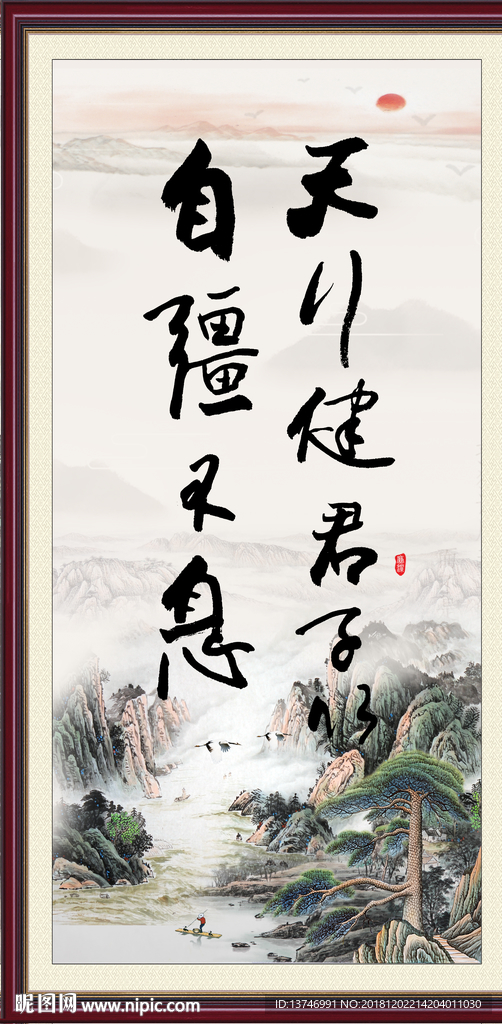 天行健君子以
自疆不息
昵图网 www.nipic.com
ID:13746991 NO:20181202214204011030